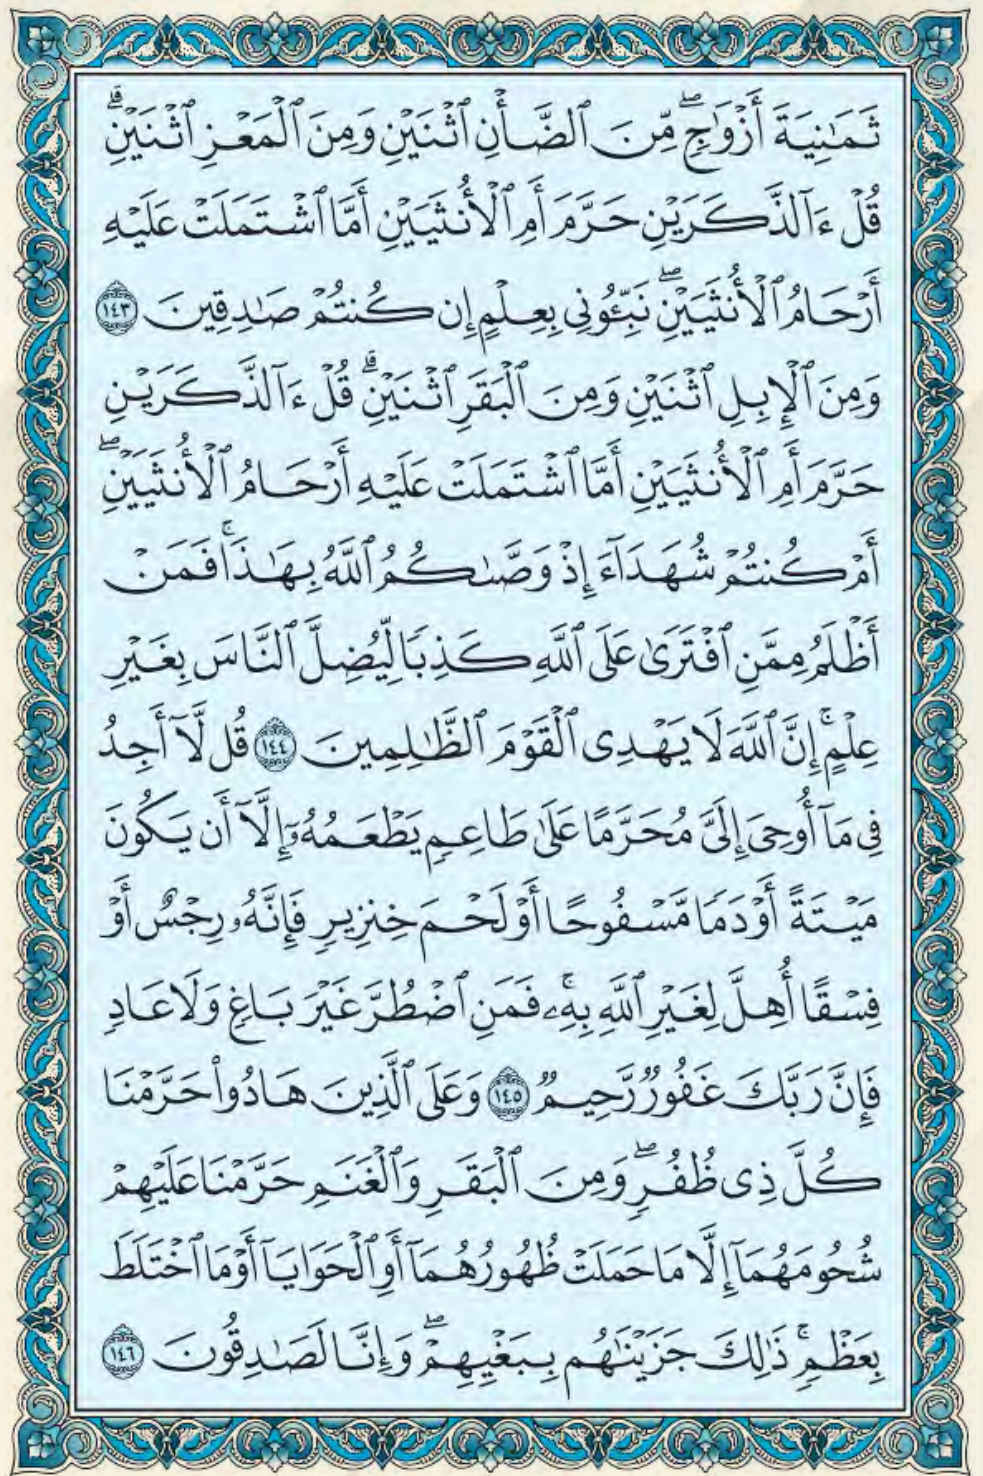 ثَمَٰنِيَةَ أَزْوَٰجٍۖ مِّنَ ٱلضَّأْنِ ٱثْنَيْنِ وَمِنَ ٱلْمَعْزِ ٱثْنَيْنِۗ
قُلْ ءَآلذَّكَرَيْنِ حَرَّمَ أَمِ ٱلْأُنثَيَيْنِ أَمَّا ٱشْتَمَلَتْ عَلَيْهِ
أَرْحَامُ ٱلْأُنثَيَيْنِۖ نَبِّـُٔونِى بِعِلْمٍ إِن كُنتُمْ صَٰدِقِينَ ١٤٣
وَمِنَ ٱلْإِبِلِ ٱثْنَيْنِ وَمِنَ ٱلْبَقَرِ ٱثْنَيْنِۗ قُلْ ءَآلذَّكَرَيْنِ
حَرَّمَ أَمِ ٱلْأُنثَيَيْنِ أَمَّا ٱشْتَمَلَتْ عَلَيْهِ أَرْحَامُ ٱلْأُنثَيَيْنِۖ
أَمْ كُنتُمْ شُهَدَآءَ إِذْ وَصَّىٰكُمُ ٱللَّهُ بِهَٰذَاۚ فَمَنْ
أَظْلَمُ مِمَّنِ ٱفْتَرَىٰ عَلَى ٱللَّهِ كَذِبًا لِّيُضِلَّ ٱلنَّاسَ بِغَيْرِ
عِلْمٍۚ إِنَّ ٱللَّهَ لَا يَهْدِى ٱلْقَوْمَ ٱلظَّٰلِمِينَ ١٤٤ قُل لَّآ أَجِدُ
فِى مَآ أُوحِىَ إِلَىَّ مُحَرَّمًا عَلَىٰ طَاعِمٍ يَطْعَمُهُۥٓ إِلَّآ أَن يَكُونَ
مَيْتَةً أَوْ دَمًا مَّسْفُوحًا أَوْ لَحْمَ خِنزِيرٍ فَإِنَّهُۥ رِجْسٌ أَوْ
فِسْقًا أُهِلَّ لِغَيْرِ ٱللَّهِ بِهِۦۚ فَمَنِ ٱضْطُرَّ غَيْرَ بَاغٍ وَلَا عَادٍ
فَإِنَّ رَبَّكَ غَفُورٌ رَّحِيمٌ ١٤٥ وَعَلَى ٱلَّذِينَ هَادُوا۟ حَرَّمْنَا
كُلَّ ذِى ظُفُرٍۖ وَمِنَ ٱلْبَقَرِ وَٱلْغَنَمِ حَرَّمْنَا عَلَيْهِمْ
شُحُومَهُمَآ إِلَّا مَا حَمَلَتْ ظُهُورُهُمَآ أَوِ ٱلْحَوَايَآ أَوْ مَا ٱخْتَلَطَ
بِعَظْمٍۚ ذَٰلِكَ جَزَيْنَٰهُم بِبَغْيِهِمْۖ وَإِنَّا لَصَٰدِقُونَ ١٤٦